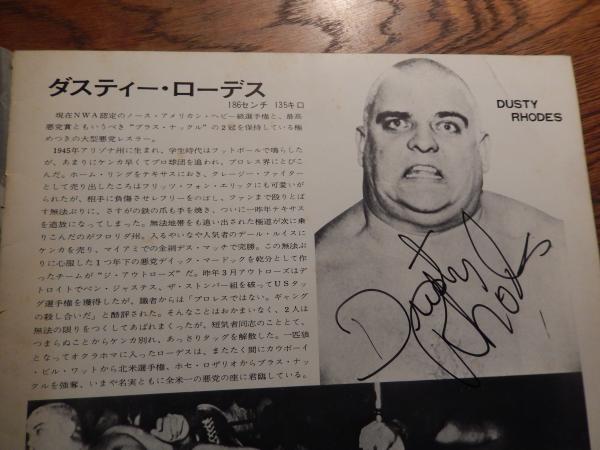 ダスティー・ローデス
186センチ 135キロ
現在NWA認定のノース・アメリカン・ヘビー級選手権と、最高
悪党賞ともいうべき“ブラス・ナックル”の2冠を保持している極
めつきの大型悪党レスラー。
1945年アリゾナ州に生まれ、学生時代はフットボールで鳴らした
が、あまりにケンカ早くてプロ球団を追われ、プロレス界にとびこ
んだ。ホーム・リングをテキサスにおき、クレージー・ファイター
として売り出したころはフリッツ・フォン・エリックにも可愛いが
られたが、相手に負傷させレフリーをのばし、ファンまで殴りとば
す無法ぶりに、さすがの鉄の爪も手を焼き、ついに一昨年テキサス
を追放になってしまった。無法地帯をも追い出された極道が次に乗
りこんだのがフロリダ州。入るやいなや人気者のデール・ルイスに
ケンカを売り、マイアミでの金網デス・マッチで完勝。この無法ぶ
りに心服した1つ年下の悪党デイック・マードックを乾分として作
ったチームが“ジ・アウトローズ”だ。昨年3月アウトローズはデ
トロイトでベン・ジャスチス、ザ・ストンパー組を破ってUSタッ
グ選手権を獲得したが、識者からは「プロレスではない。ギャング
の殺し合いだ」と酷評された。そんなことはおかまいなく、2人は
無法の限りをつくしてあばれまくったが、短気者同志のこととて、
つまらぬことからケンカ別れ、あっさりタッグを解散した。一匹狼
となってオクラホマに入ったローデスは、またたく間にカウボーイ
・ビル・ワットから北米選手権、ホセ・ロザリオからブラス・ナッ
クルを強奪、いまや名実ともに全米一の悪党の座に君臨している。
DUSTY
RHODES
Dusty
Rhodes